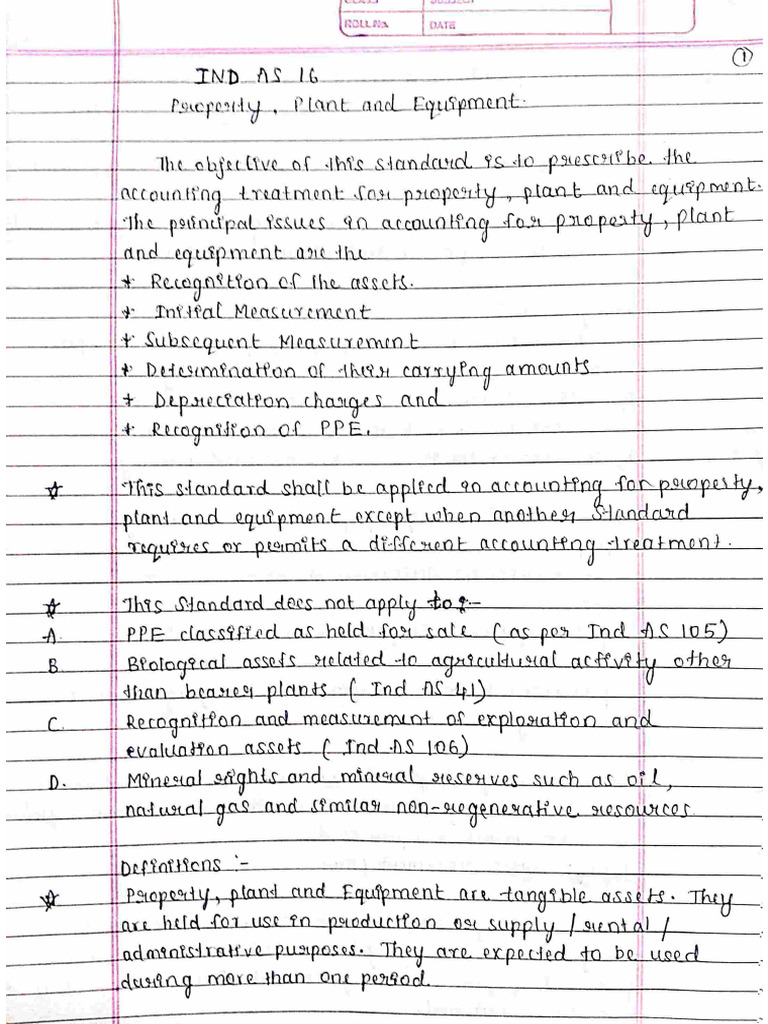 CLASS SUBJECT
ROLL No. DATE
1
IND AS 16
Property, Plant and Equipment.
The objective of this standard is to prescribe the
accounting treatment for property, plant and equipment.
The principal issues in accounting for property, plant
and equipment are the
* Recognition of the assets.
* Initial Measurement
* Subsequent Measurement
* Determination of their carrying amounts
* Depreciation charges and
* Recognition of PPE.
☆ This standard shall be applied in accounting for property,
plant and equipment except when another Standard
requires or permits a different accounting treatment.
☆ This Standard does not apply to :-
A. PPE classified as held for sale (as per Ind AS 105)
B. Biological assets related to agricultural activity other
than bearer plants ( Ind AS 41)
C. Recognition and measurement of exploration and
evaluation assets ( Ind AS 106)
D. Mineral rights and mineral reserves such as oil,
natural gas and similar non-regenerative resources.
Definitions :-
☆ Property, plant and Equipment are tangible assets. They
are held for use in production or supply / rental /
administrative purposes. They are expected to be used
during more than one period.